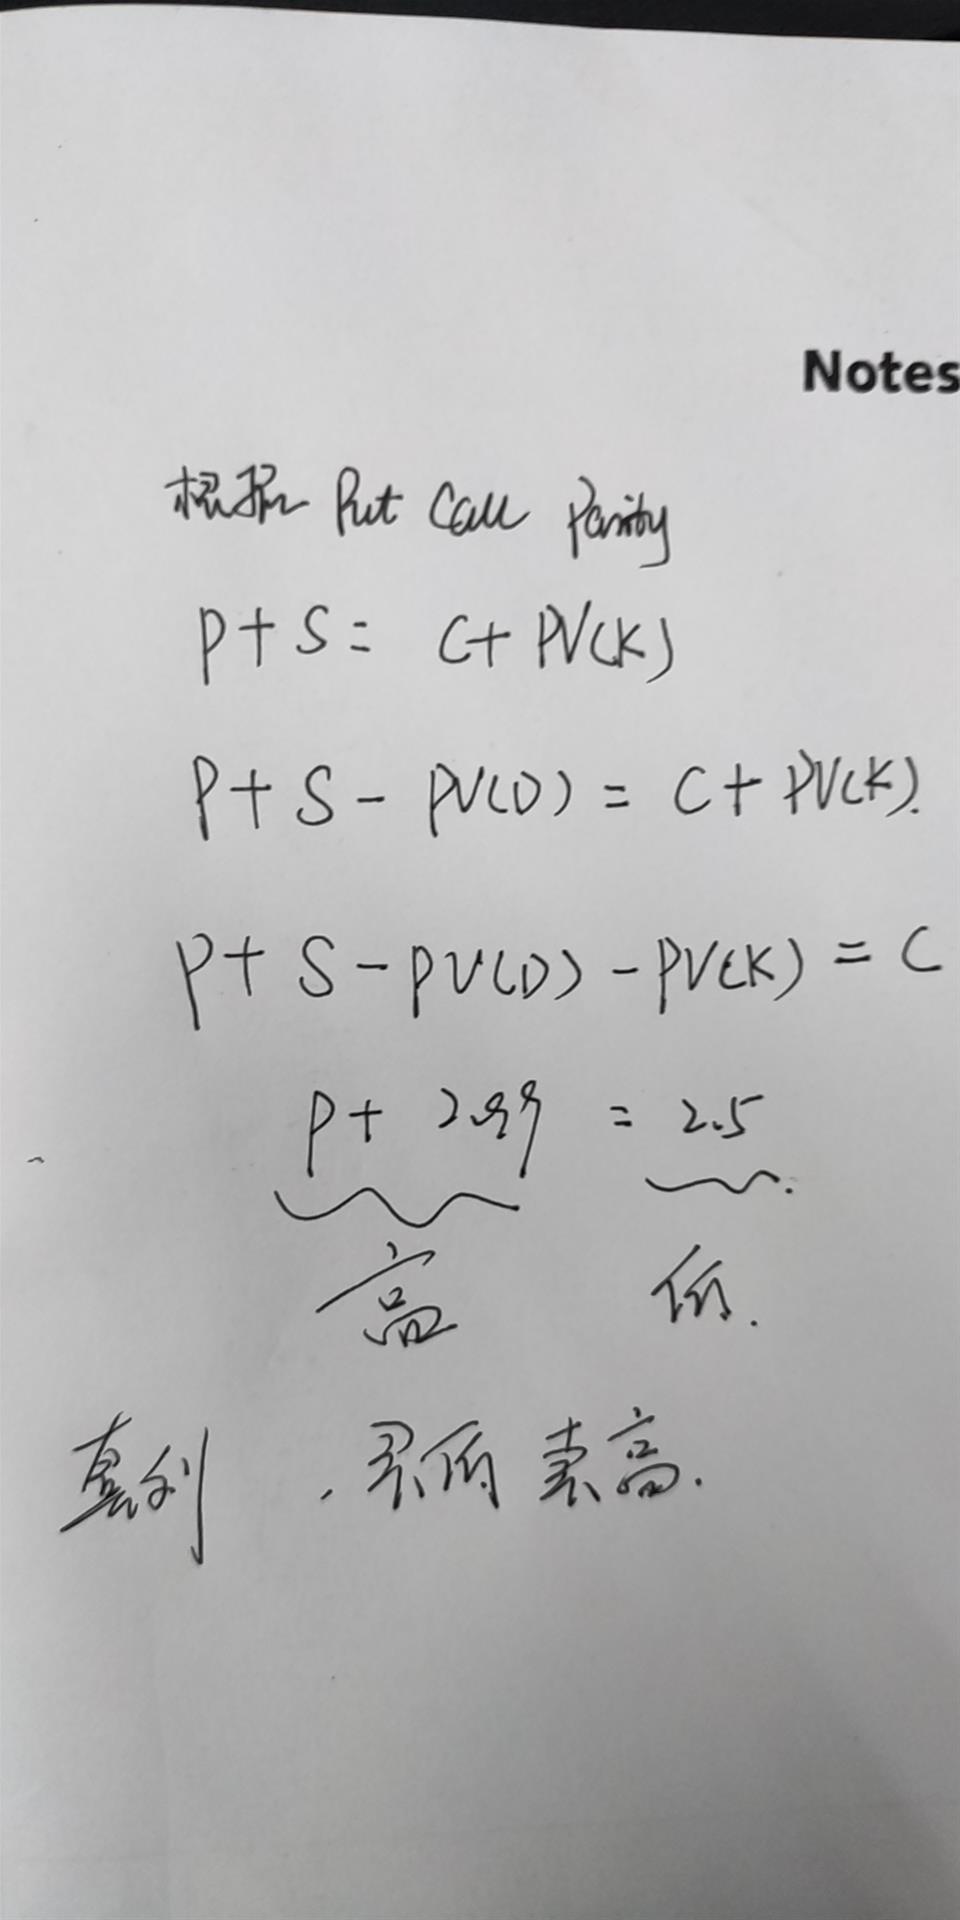 Notes
根据 Put Call Parity
P + S = C + PV(K)
P + S - PV(D) = C + PV(K).
P + S - PV(D) - PV(K) = C
P + 2.99 = 2.5
高 低.
套利 , 买低 卖高.